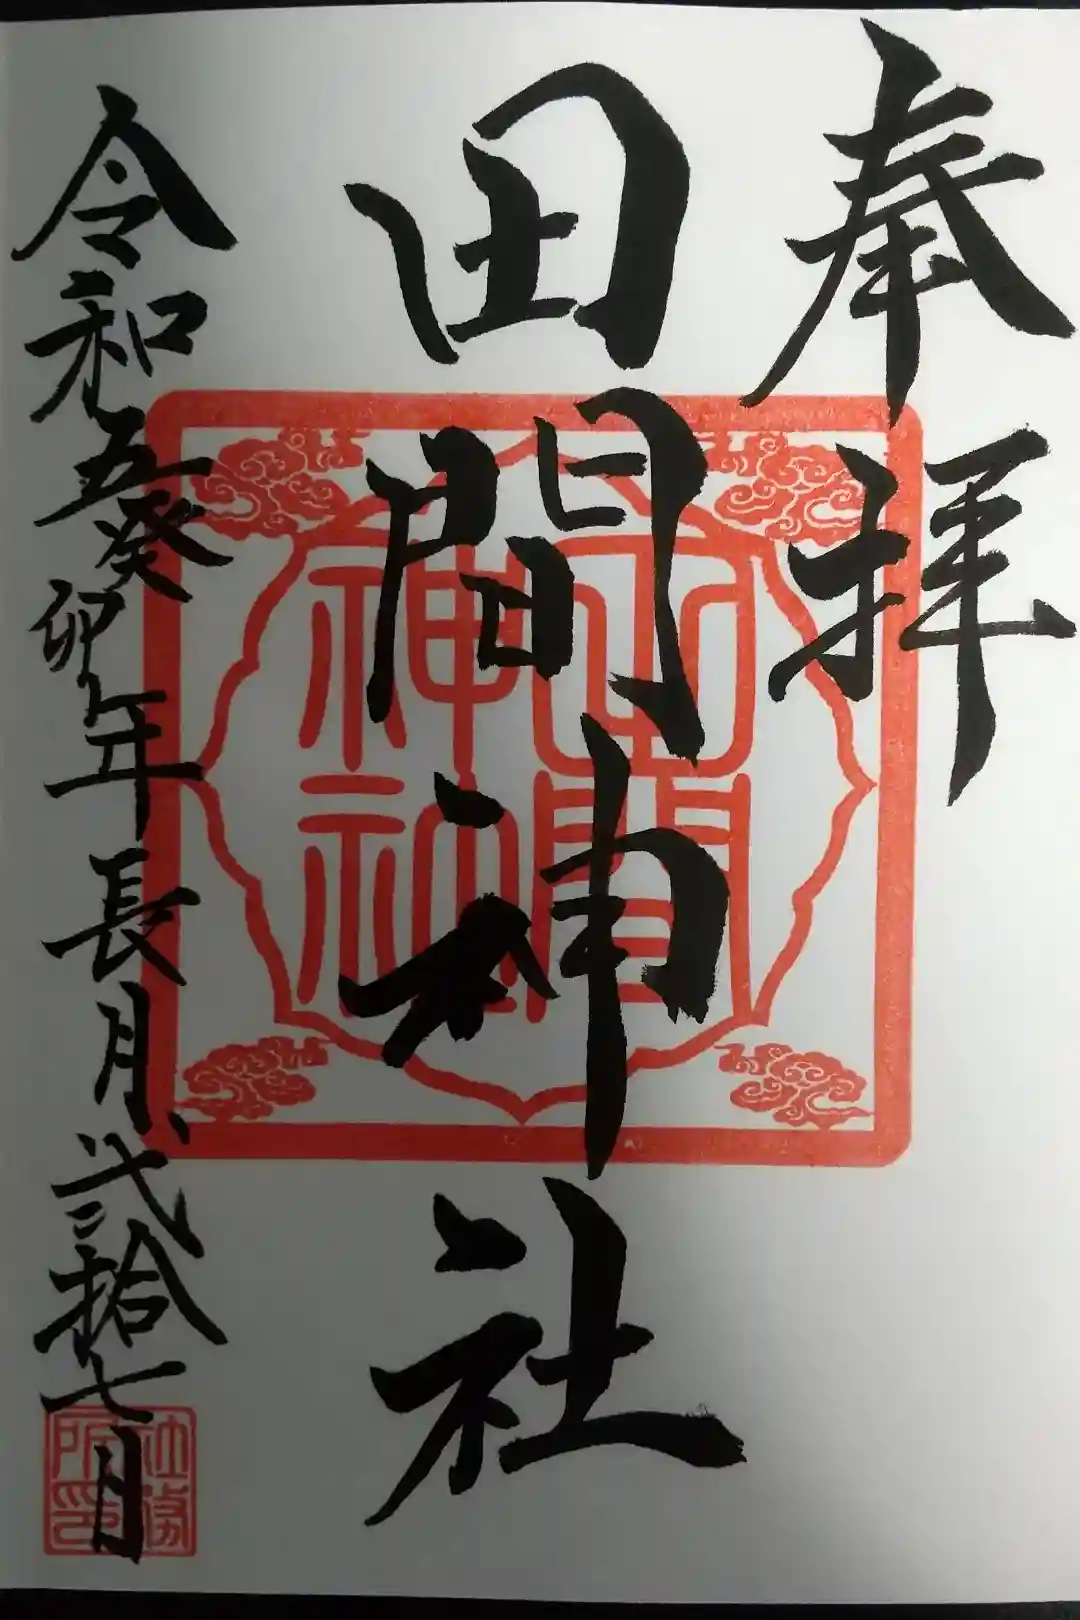 奉拝
田間神社
令和五癸卯年長月弐拾七日
田間
神社
社務
所印